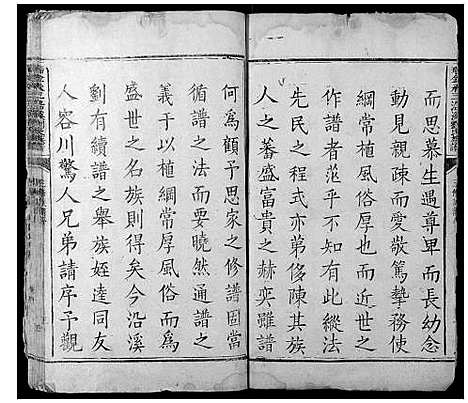 而思慕生遇尊卑而長幼念
動見親疎而愛敬篤摯務使
綱常植風俗厚也而近世之
作譜者茫乎不知有此縱法
先民之程式亦第侈陳其族
人之蕃盛富貴之赫奕雖譜
何爲顧予思家之修譜固當
循譜之法而要曉然通譜之
義于以植綱常厚風俗而爲
盛世之名族則得矣今沿溪
劉有續譜之舉族姪達同友
人容川驚人兄弟請序予觀